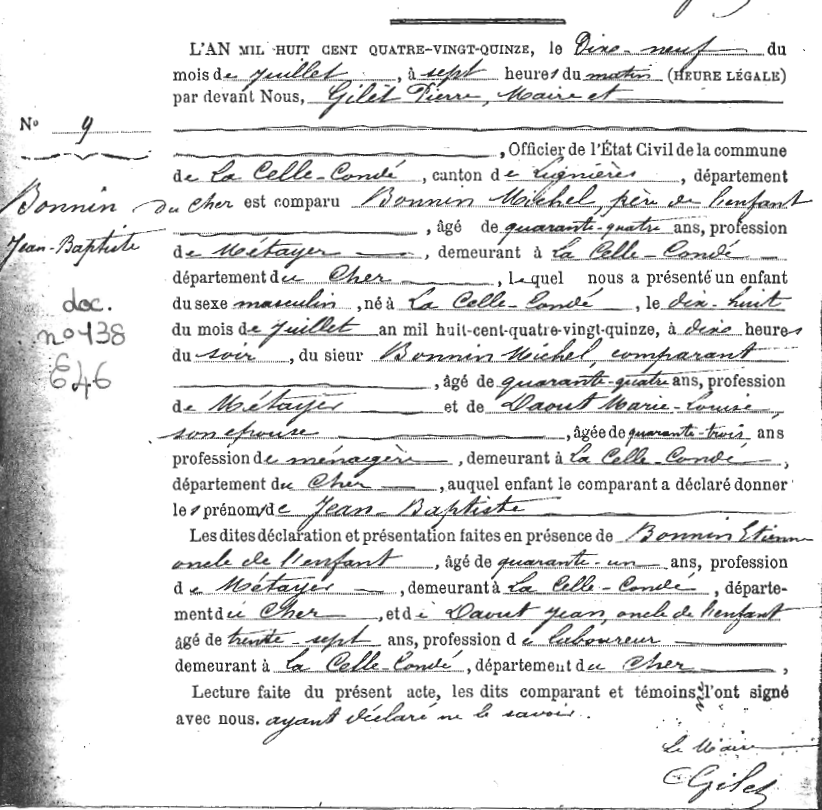 L'AN MIL HUIT CENT QUATRE-VINGT-QUINZE, le Dix-neuf du
mois de Juillet, à sept heures du matin (HEURE LÉGALE)
par devant Nous, Gilet Pierre, Maire et
N° 9
, Officier de l'État Civil de la commune
de La Celle-Condé, canton de Lignières, département
Bonnin
Jean-Baptiste
du Cher est comparu Bonnin Michel, père de l'enfant
, âgé de quarante-quatre ans, profession
de Métayer, demeurant à La Celle-Condé
département du Cher, lequel nous a présenté un enfant
doc.
n° 138
E46
du sexe masculin, né à La Celle-Condé, le dix-huit
du mois de Juillet an mil huit-cent-quatre-vingt-quinze, à dix heures
du soir, du sieur Bonnin Michel, comparant
, âgé de quarante-quatre ans, profession
de Métayer et de Daout Marie-Louise,
son épouse, âgée de quarante-trois ans
profession de ménagère, demeurant à La Celle-Condé,
département du Cher, auquel enfant le comparant a déclaré donner
les prénoms de Jean-Baptiste
Les dites déclaration et présentation faites en présence de Bonnin Etienne
oncle de l'enfant, âgé de quarante-un ans, profession
de Métayer, demeurant à La Celle-Condé, départe-
ment du Cher, et de Daout Jean, oncle de l'enfant
âgé de trente-sept ans, profession de laboureur
demeurant à La Celle-Condé, département du Cher,
Lecture faite du présent acte, les dits comparant et témoins ne l'ont signé
avec nous. ayant déclaré ne le savoir.
Le Maire
Gilet